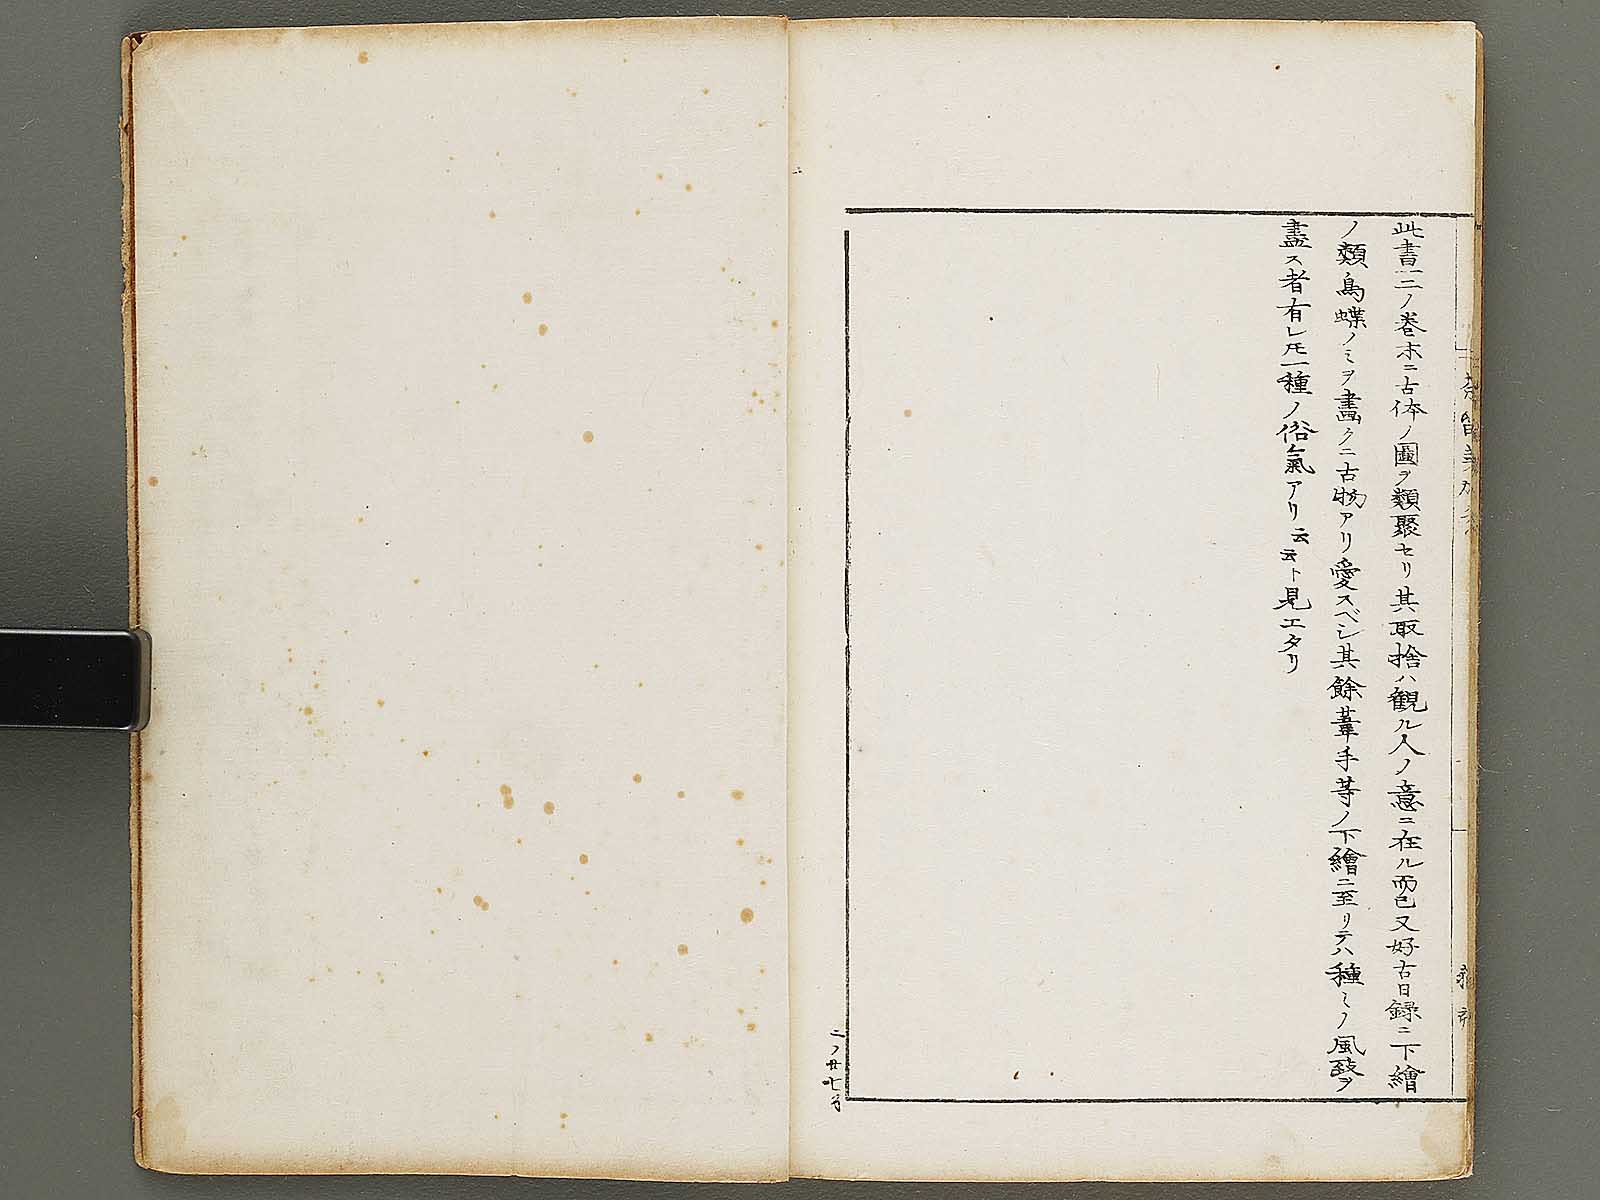 此書三ノ巻末ニ古体ノ圖ヲ類聚セリ其取捨ハ観ル人ノ意ニ在ル而已又好古日録ニ下繪
ノ類鳥蝶ノミヲ畵クニ古物アリ愛スベシ其餘葦手等ノ下繪ニ至リテハ種〻ノ風致ヲ
盡ス者有レ𪜈一種ノ俗氣アリ云云ト見エタリ
二ノ廿七